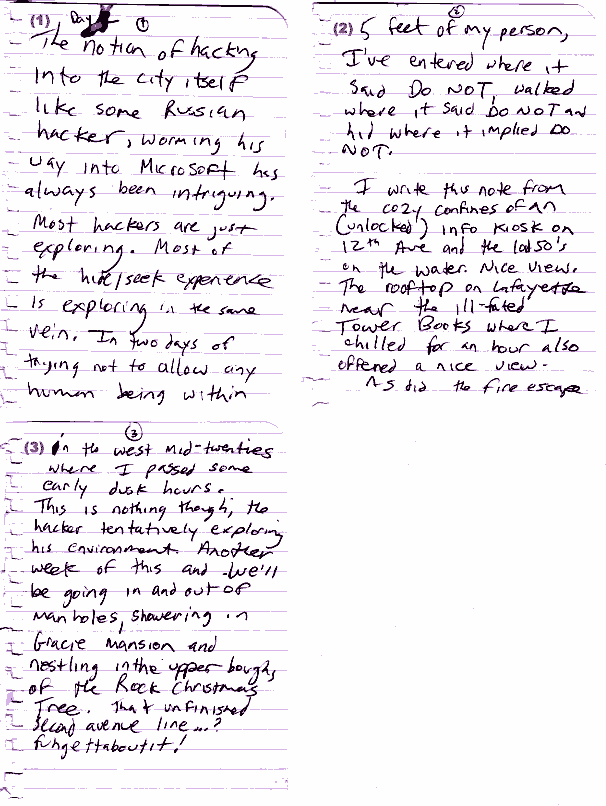 (1) Day 1
The notion of hacking
into the city itself
like some Russian
hacker, worming his
way into Microsoft has
always been intriguing.
Most hackers are just
exploring. Most of
the hide/seek experience
is exploring in the same
vein. In two days of
trying not to allow any
human being within
2
(2) 5 feet of my person,
I've entered where it
said DO NOT, walked
where it said DO NOT and
hid where it implied DO
NOT.
I write this note from
the cozy confines of an
(unlocked) info kiosk on
12th Ave and the low 50's
on the water. Nice view.
The rooftop on Lafayette
near the ill-fated
Tower Books where I
chilled for an hour also
offered a nice view.
As did the fire escape
3
(3) in the west mid-twenties
where I passed some
early dusk hours.
This is nothing though, the
hacker tentatively exploring
his environment. Another
week of this and we'll
be going in and out of
manholes, showering in
Gracie Mansion and
nestling in the upper boughs
of the Rock Christmas
Tree. That unfinished
second avenue line...?
fuhgettaboutit!